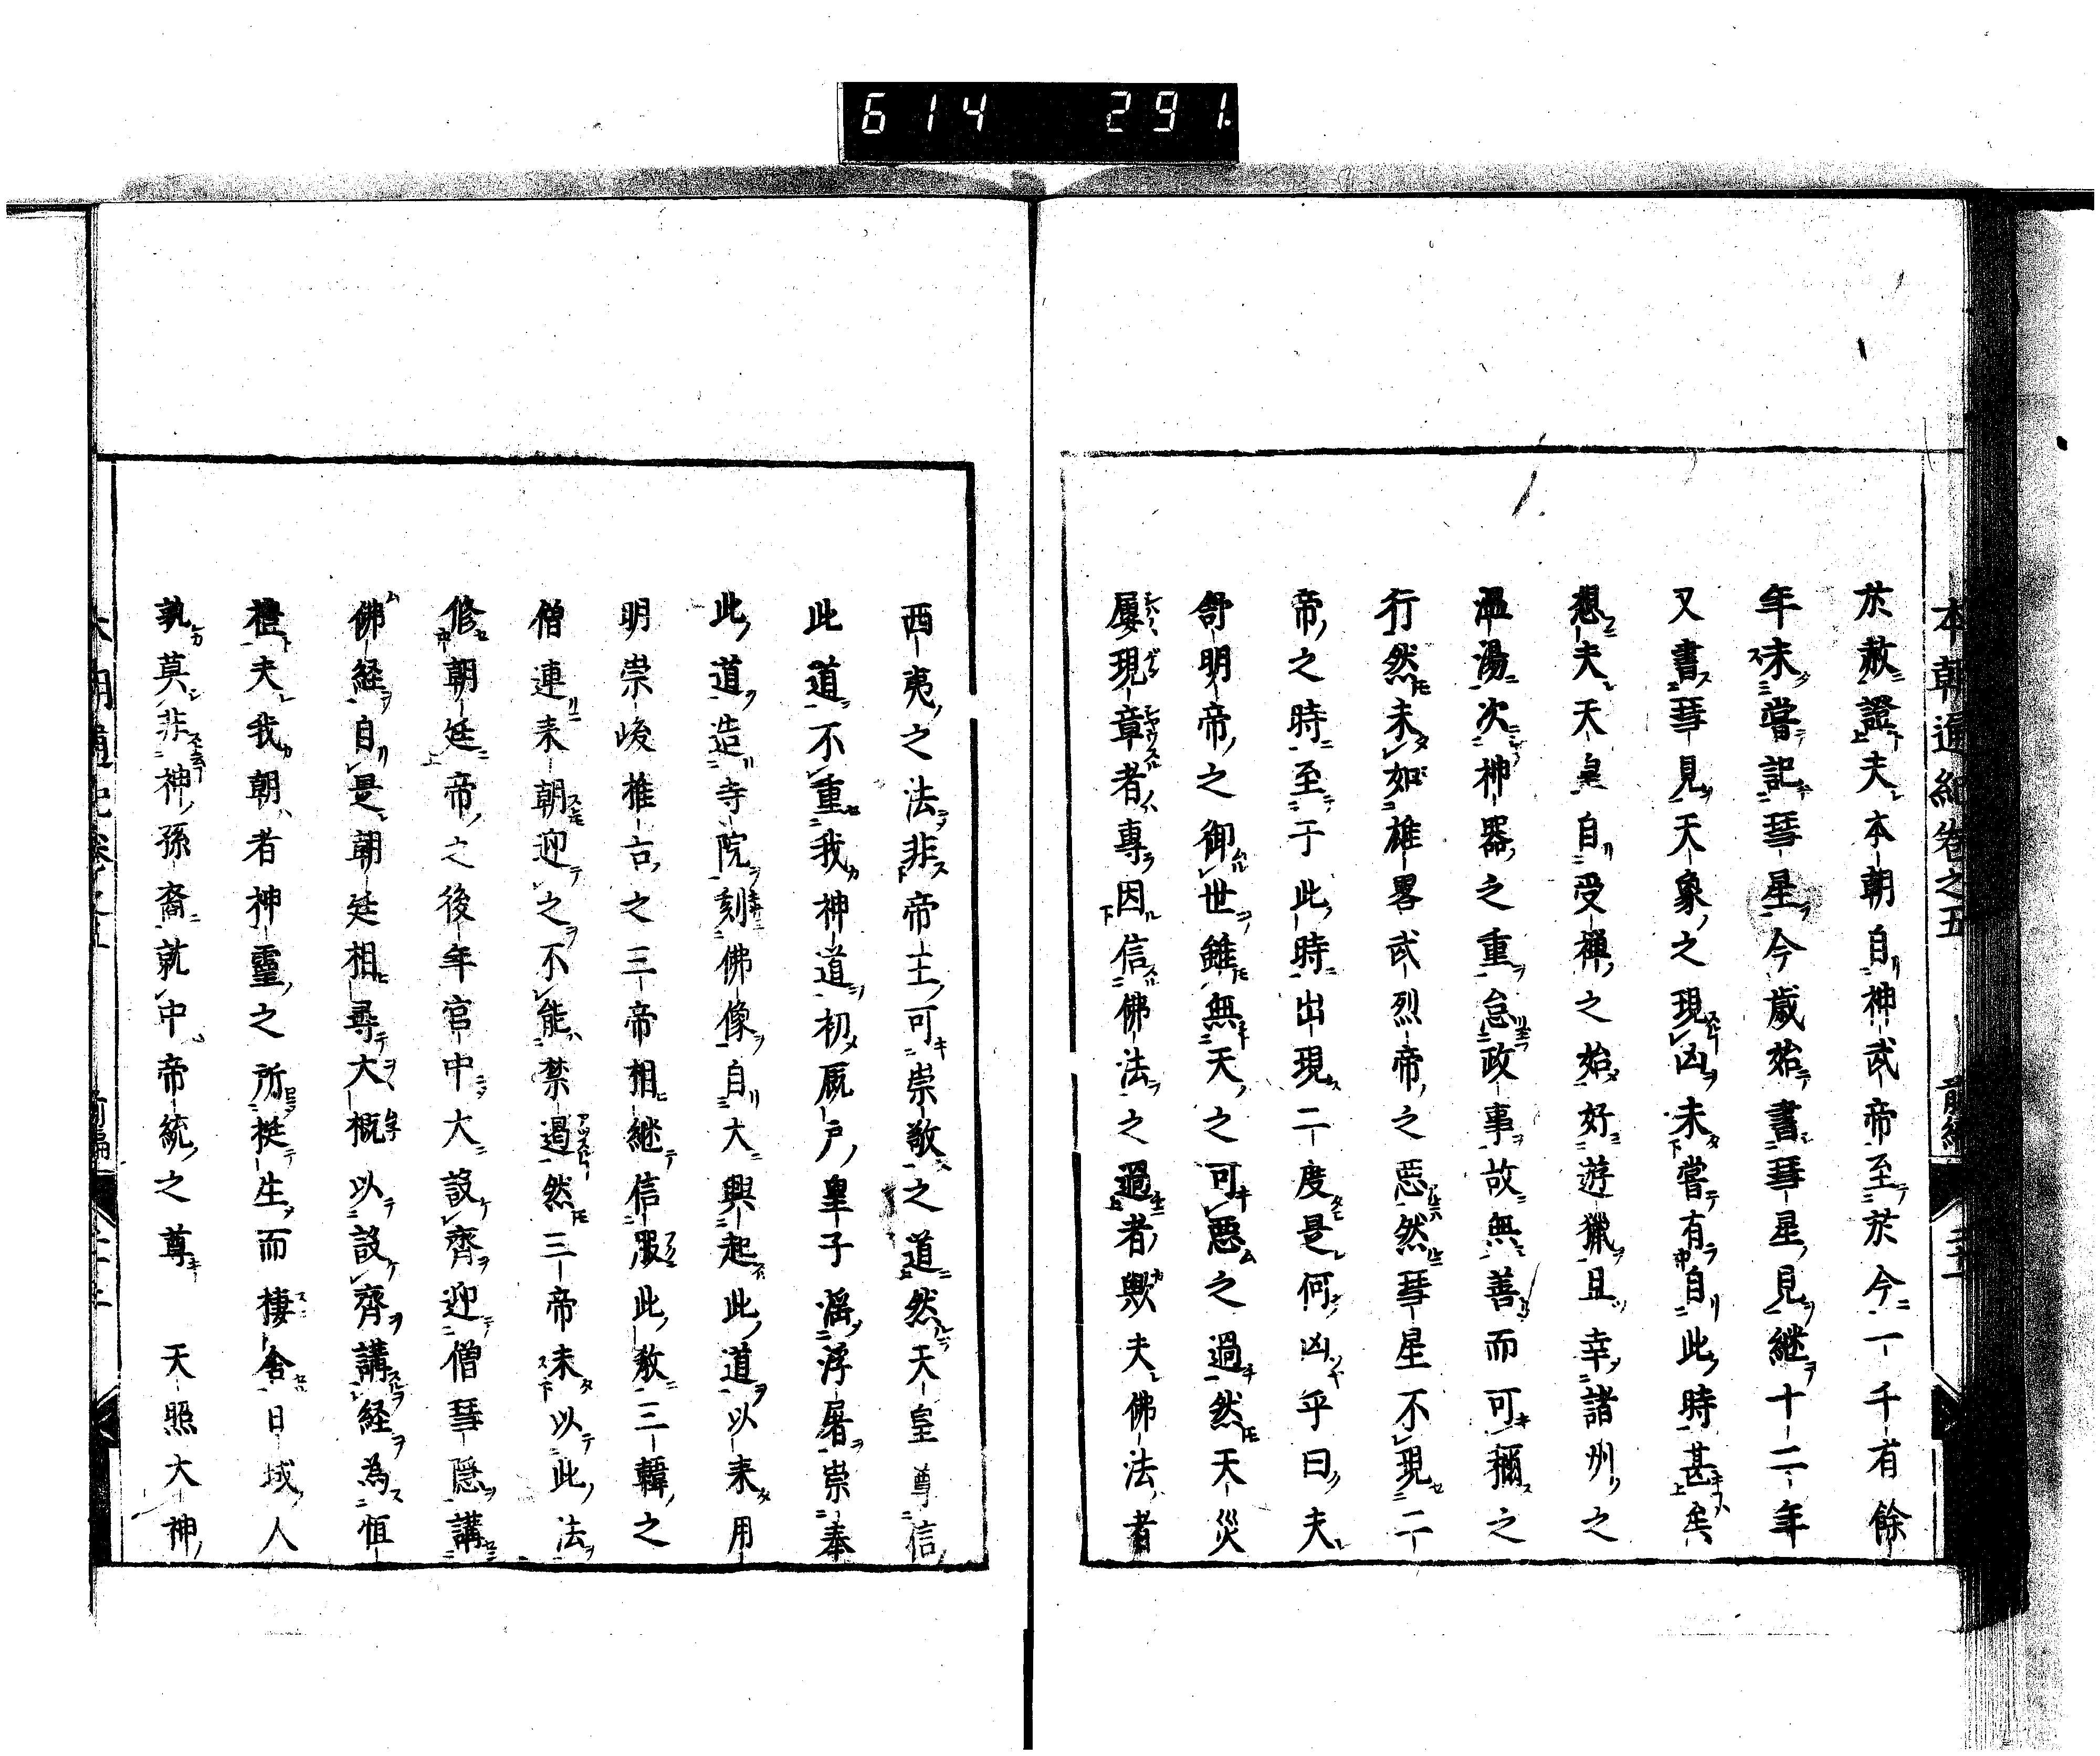 614 291
本朝通紀卷之五 前編 三十一
於赦證夫本朝自神武帝至於今一千有餘
年未嘗記彗星今歲始書彗星見継十二年
又書彗見天象之現凶未嘗有自此時甚矣
想夫天皇自受禅之始好遊獵且幸諸州之
温湯次神器之重怠政事故無善而可稱之
行然未如雄畧武烈帝之惡然彗星不現二
帝之時至于此時出現二度是何凶乎曰夫
舒明帝之御世雖無天之可惡之過然天災
屢現章者專因信佛法之過者歟夫佛法者
西夷之法非帝王可崇敬之道然天皇尊信
此道不重我神道初厩戸皇子滛浮屠崇奉
此道造寺院刻佛像自大興起此道以来用
明崇峻推古之三帝相継信服此教三韓之
僧連来朝迎之不能禁遏然三帝未以此法
修朝廷帝之後年宮中大設齊迎僧彗隠講
佛経自是朝廷相尋大概以設齊講経為恒
禮夫我朝者神靈之所挺生而棲舎日域人
孰莫非神孫裔就中帝統之尊 天照大神